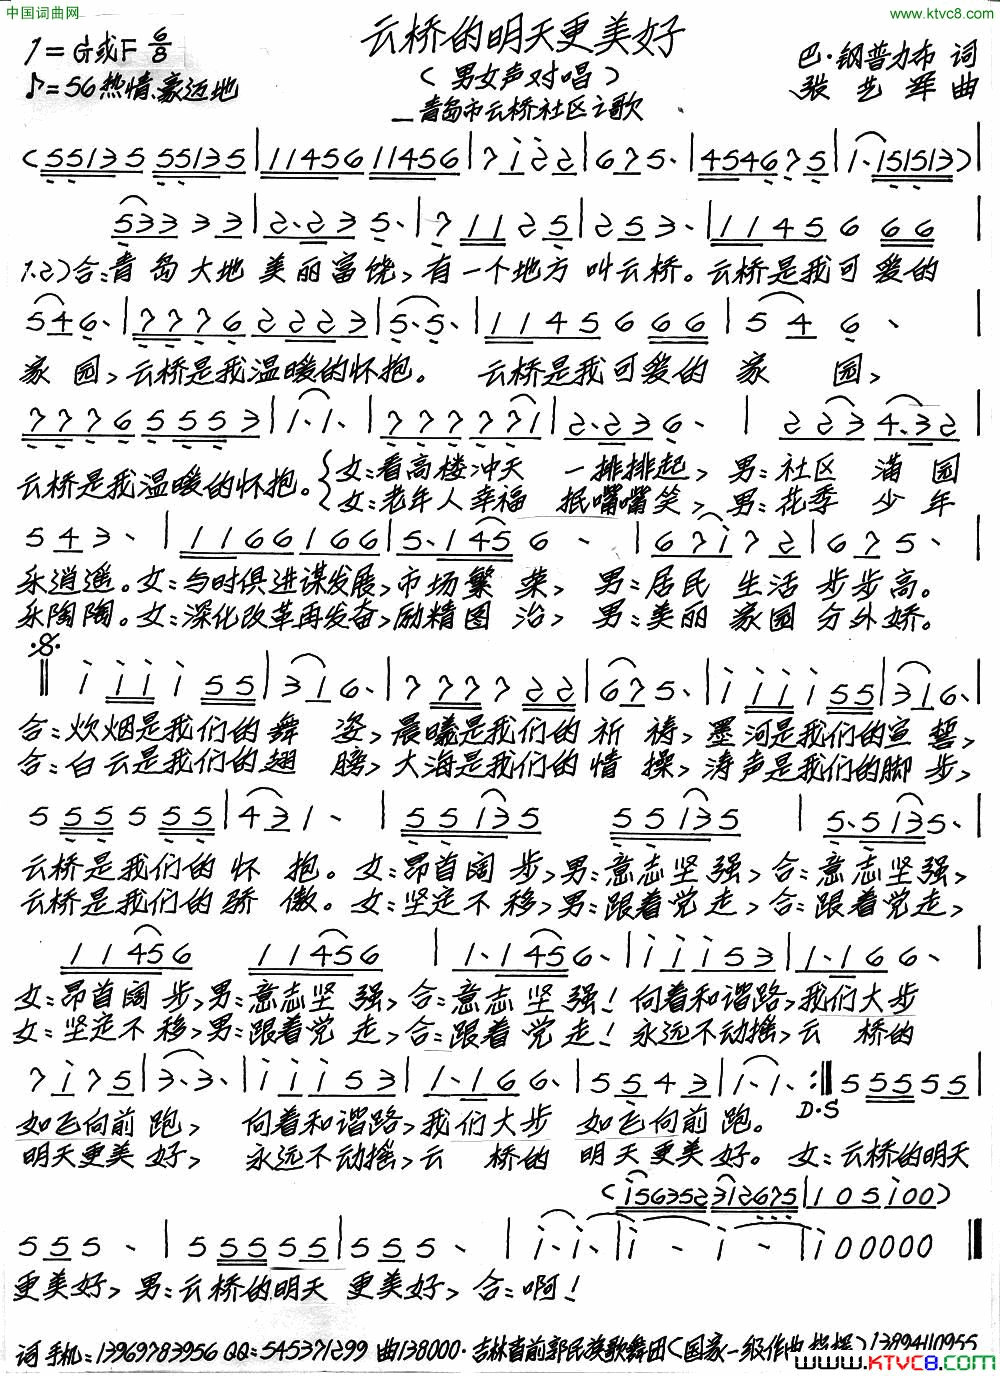 中国词曲网
www.ktvc8.com
云桥的明天更美好
1=G或F 6/8
(男女声对唱)
巴·钢普力布 词
♪=56 热情、豪迈地
—青岛市云桥社区之歌
张艺军 曲
(55135 55135|11456 11456|7 i 2 2|6 7 5·|4546 7 5|1·151513)|
5333 3 3|2·2 3 5·|7 1 1 2 5|2 5 3·|1 1 4 5 6 6 6|
1.2)合:青岛大地美丽富饶,有一个地方叫云桥。云桥是我可爱的
5 4 6·|7 7 7 6 2 2 2 3|5·5·|1 1 4 5 6 6 6|5 4 6·|
家园,云桥是我温暖的怀抱。 云桥是我可爱的家园,
7 7 7 6 5 5 5 3|1·1·|7 7 7 7 7 1|2·2 3 6·|2 2 3 4·3 2|
云桥是我温暖的怀抱。
女:看高楼冲天 一排排起,男:社区满园
女:老年人幸福 抿嘴嘴笑,男:花季少年
5 4 3·|1 1 6 6 1 6 6|5·1 4 5 6·|6 7 i 7 2|6 7 5·|
乐逍遥。女:与时俱进谋发展,市场繁荣,男:居民生活步步高。
乐陶陶。女:深化改革再发奋,励精图治,男:美丽家园分外娇。
i i i i i 5 5|3 1 6·|7 7 7 7 7 2 2|6 7 5·|i i i i i 5 5|3 1 6·|
合:炊烟是我们的舞姿,晨曦是我们的祈祷,墨河是我们的宣誓,
合:白云是我们的翅膀,大海是我们的情操,涛声是我们的脚步,
5 5 5 5 5 5 5|4 3 1·|5 5 1 3 5 5 5 1 3 5|5·5 1 3 5·|
云桥是我们的怀抱。女:昂首阔步,男:意志坚强,合:意志坚强,
云桥是我们的骄傲。女:坚定不移,男:跟着党走,合:跟着党走,
1 1 4 5 6 1 1 4 5 6|1·1 4 5 6·|i i i 5 3|1·1 6 6·|
女:昂首阔步,男:意志坚强,合:意志坚强!向着和谐路,我们大步
女:坚定不移,男:跟着党走,合:跟着党走!永远不动摇,云桥的
7 i 7 5|3·3·|i i i 5 3|1·1 6 6·|5 5 4 3|1·1·:‖5 5 5 5 5|
D·S
如飞向前跑, 向着和谐路,我们大步如飞向前跑。
明天更美好, 永远不动摇,云桥的明天更美好。女:云桥的明天
(i56352312675|1 0 5 i 0 0)
5 5 5·|5 5 5 5 5 5|5 5 5·|i·i·|i·i·|i 0 0 0 0 0‖
更美好,男:云桥的明天更美好,合:啊!
词 手机:13969783956 QQ:545371299 曲138000·吉林省前郭民族歌舞团(国家一级作曲 1389411095
www.KTVC8.com